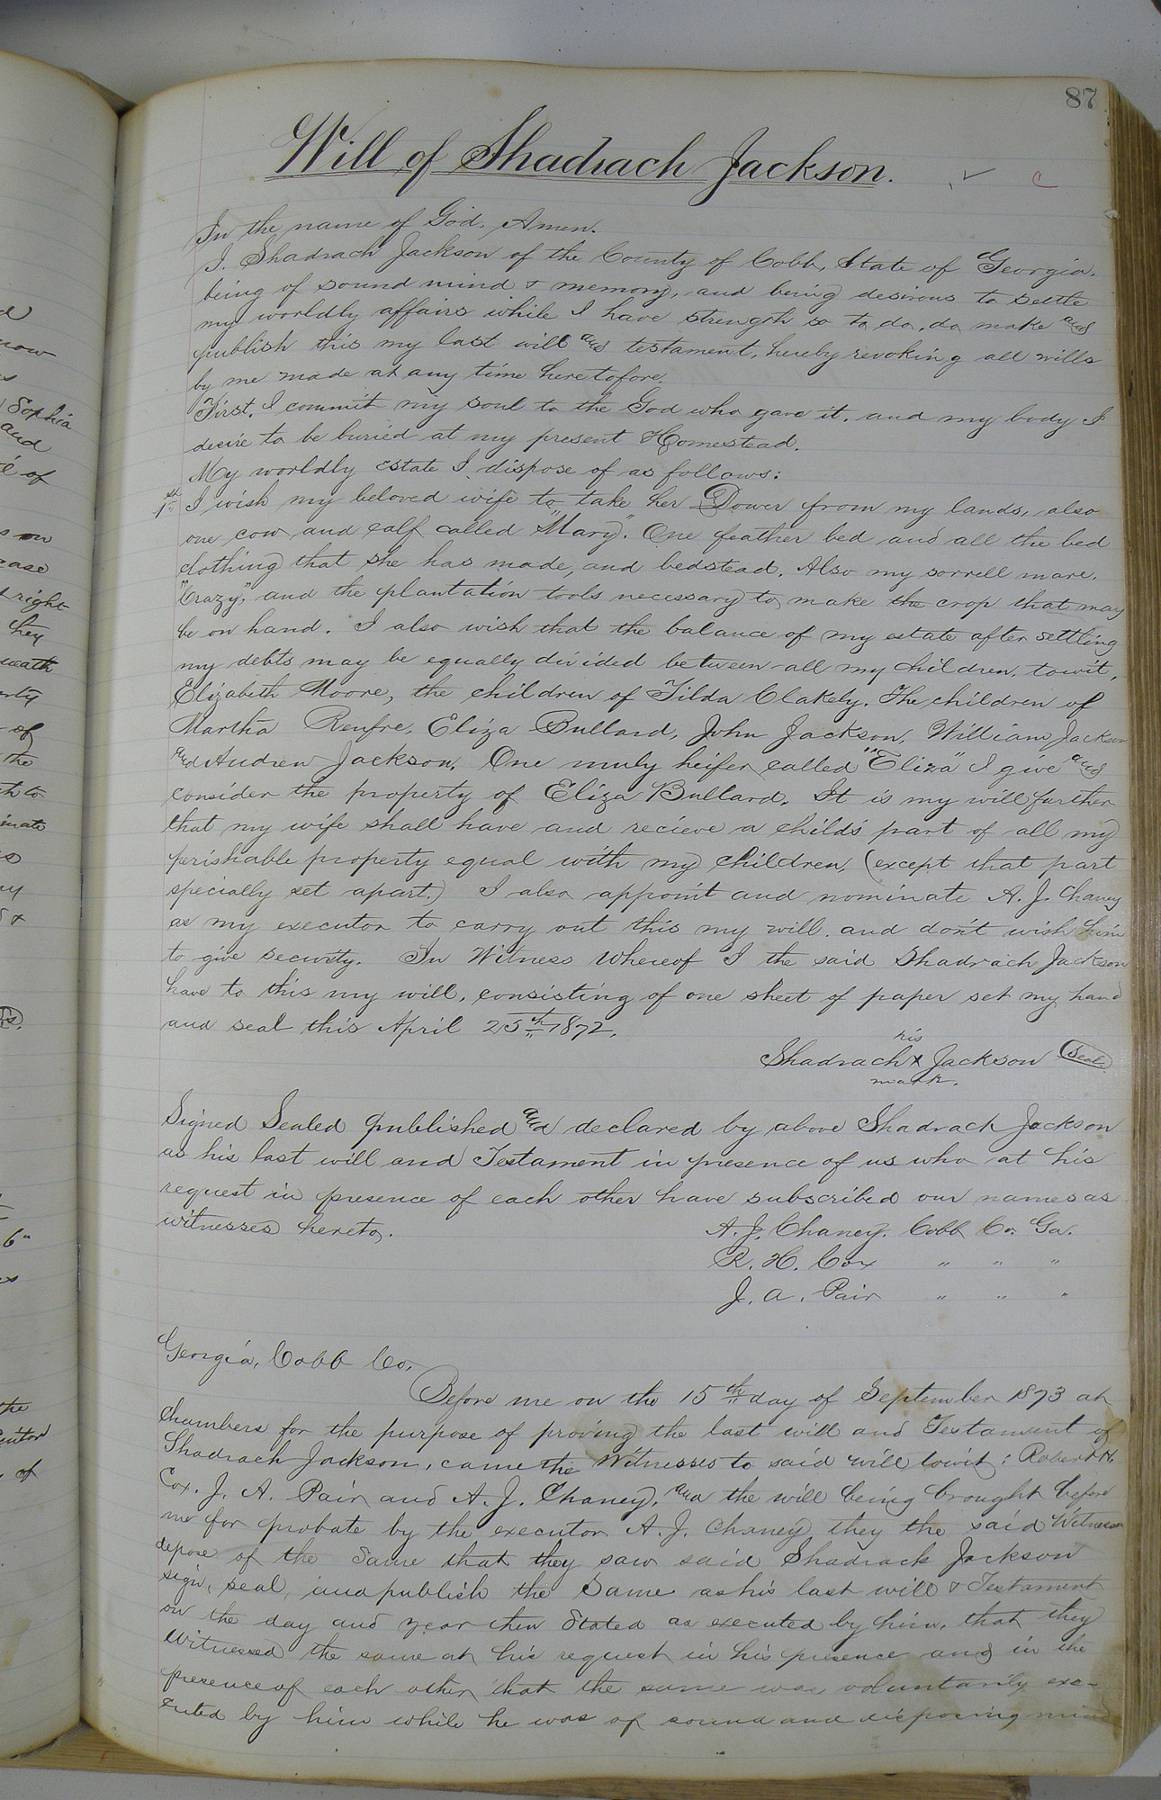 87
Will of Shadrach Jackson.
In the name of God. Amen.
I. Shadrach Jackson of the County of Cobb, State of Georgia.
being of sound mind & memory, and being desirous to settle
my worldly affairs while I have strength so to do, do make and
publish this my last will and testament, hereby revoking all wills
by me made at any time heretofore.
First. I commit my soul to the God who gave it. and my body I
desire to be buried at my present Homestead.
My worldly estate I dispose of as follows:
1st I wish my beloved wife to take her Dower from my lands, also
one cow and calf called "Mary". One feather bed and all the bed
clothing that she has made, and bedstead. Also my sorrell mare.
"Crazy," and the plantation tools necessary to make the crop that may
be on hand. I also wish that the balance of my estate after settling
my debts may be equally divided between all my children, towit,
Elizabeth Moore, the children of Tilda Clakely. The children of
Martha Renfre, Eliza Bullard, John Jackson, William Jackson
and Andrew Jackson. One muly heifer called "Eliza" I give and
consider the property of Eliza Bullard. It is my will further
that my wife shall have and recieve a child's part of all my
perishable property equal with my children, (except that part
specially set apart.) I also appoint and nominate A. J. Chaney
as my executor to carry out this my will. and don't wish him
to give security. In Witness Whereof I the said Shadrach Jackson
have to this my will, consisting of one sheet of paper set my hand
and seal this April 25th 1872.
his
Shadrach x Jackson Seal
mark.
Signed Sealed published and declared by above Shadrack Jackson
as his last will and Testament in presence of us who at his
request in presence of each other have subscribed our names as
witnesses hereto.
A. J. Chaney. Cobb Co. Ga.
R. H. Cox " " "
J. A. Pair " " "
Georgia, Cobb Co.
Before me on the 15th day of September 1873 at
Chambers for the purpose of proving the last will and Testament of
Shadrach Jackson, came the Witnesses to said will towit: Robert H.
Cox. J. A. Pair and A. J. Chaney, and the will being brought before
me for probate by the executor A. J. Chaney they the said Witnesses
depose of the Same that they saw said Shadrack Jackson
sign, seal, and publish the Same as his last will & Testament
on the day and year then Stated as executed by him, that they
Witnessed the same at his request in his presence and in the
presence of each other, that the same was voluntarily exe-
cuted by him while he was of sound and disposing mind